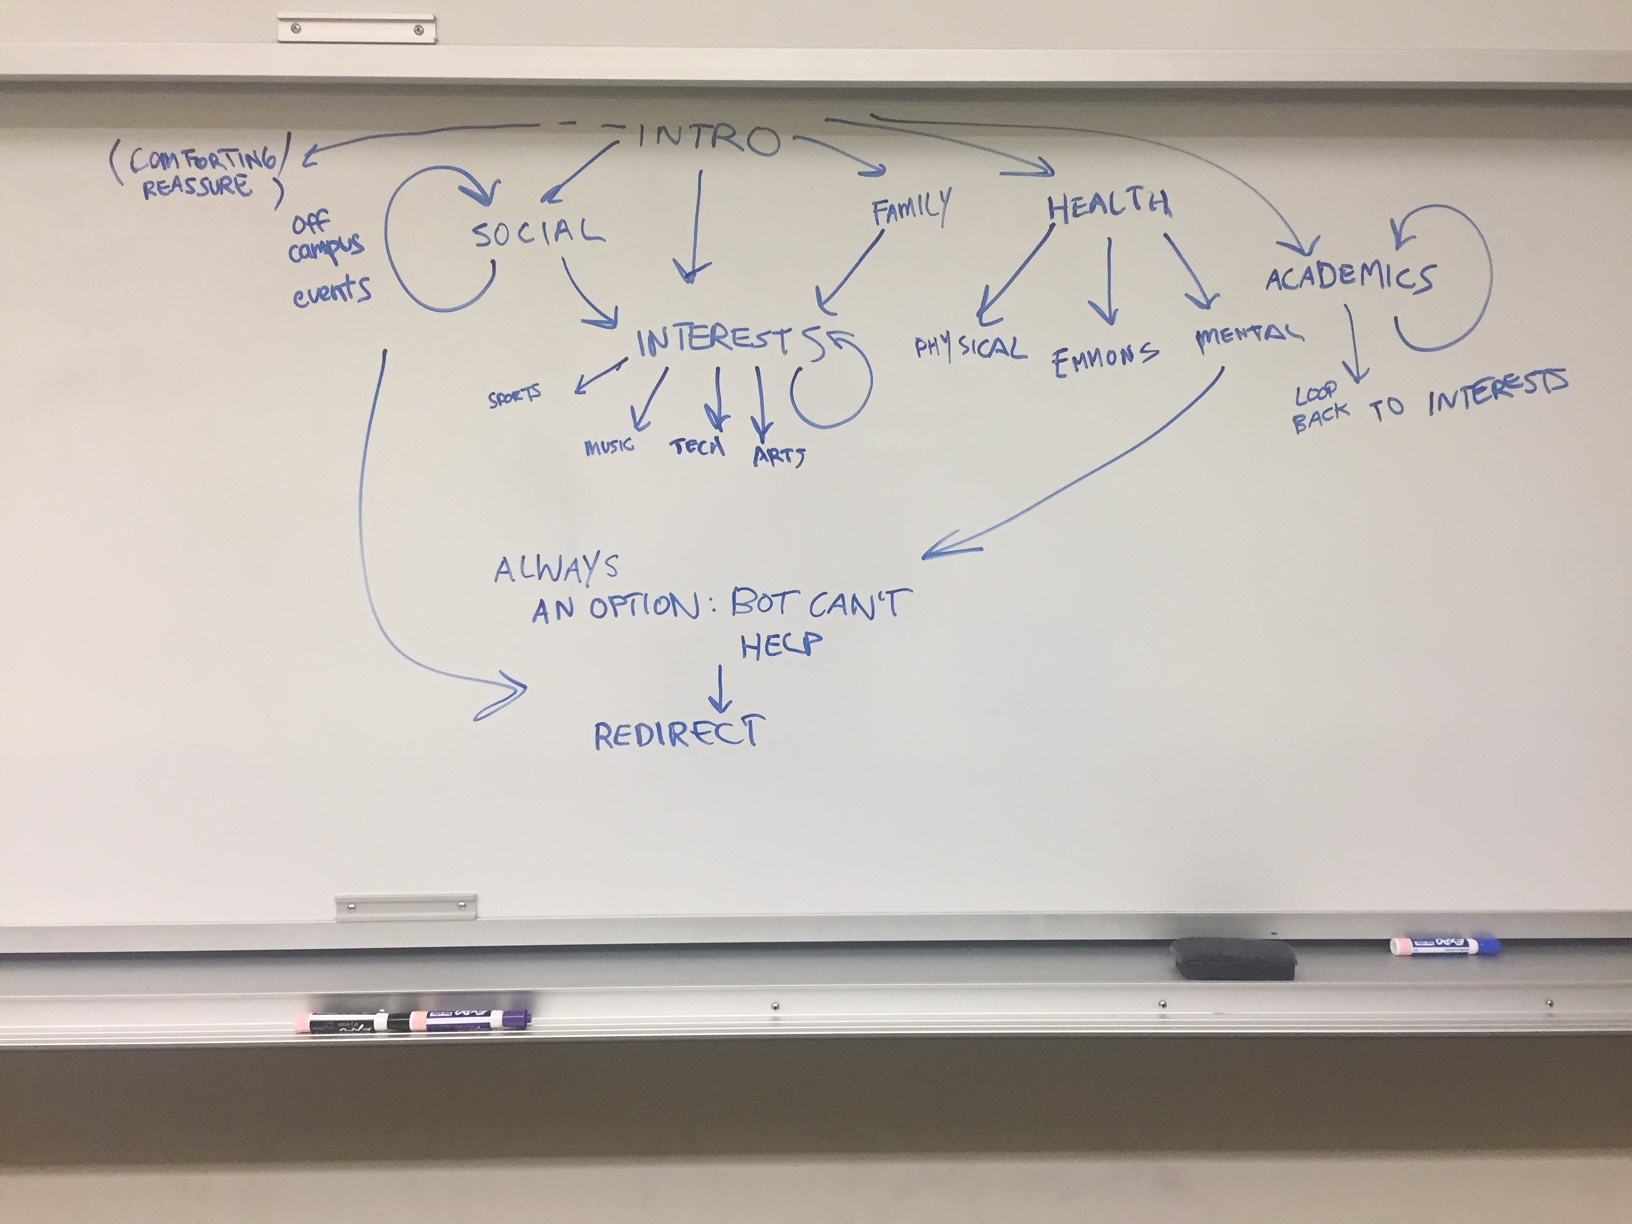 INTRO
(COMFORTING/
REASSURE)
OFF
campus
events
SOCIAL
FAMILY
HEALTH
ACADEMICS
INTERESTS
SPORTS
MUSIC
TECH
ARTS
PHYSICAL
EMMONS
MENTAL
LOOP
BACK TO INTERESTS
ALWAYS
AN OPTION: BOT CAN'T
HELP
REDIRECT